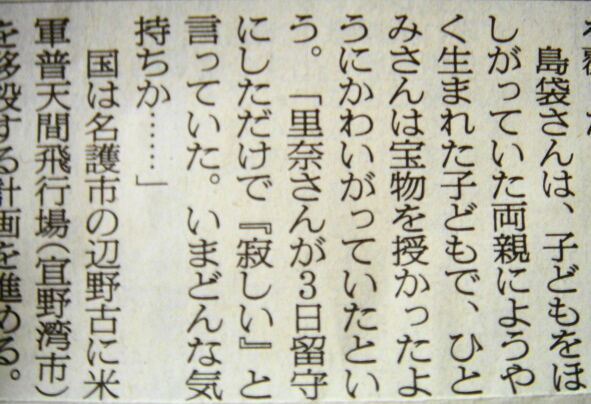 島袋さんは、子どもをほ
しがっていた両親にようや
く生まれた子どもで、ひと
みさんは宝物を授かったよ
うにかわいがっていたとい
う。「里奈さんが3日留守
にしただけで『寂しい』と
言っていた。いまどんな気
持ちか……」
国は名護市の辺野古に米
軍普天間飛行場(宜野湾市)
を移設する計画を進める。